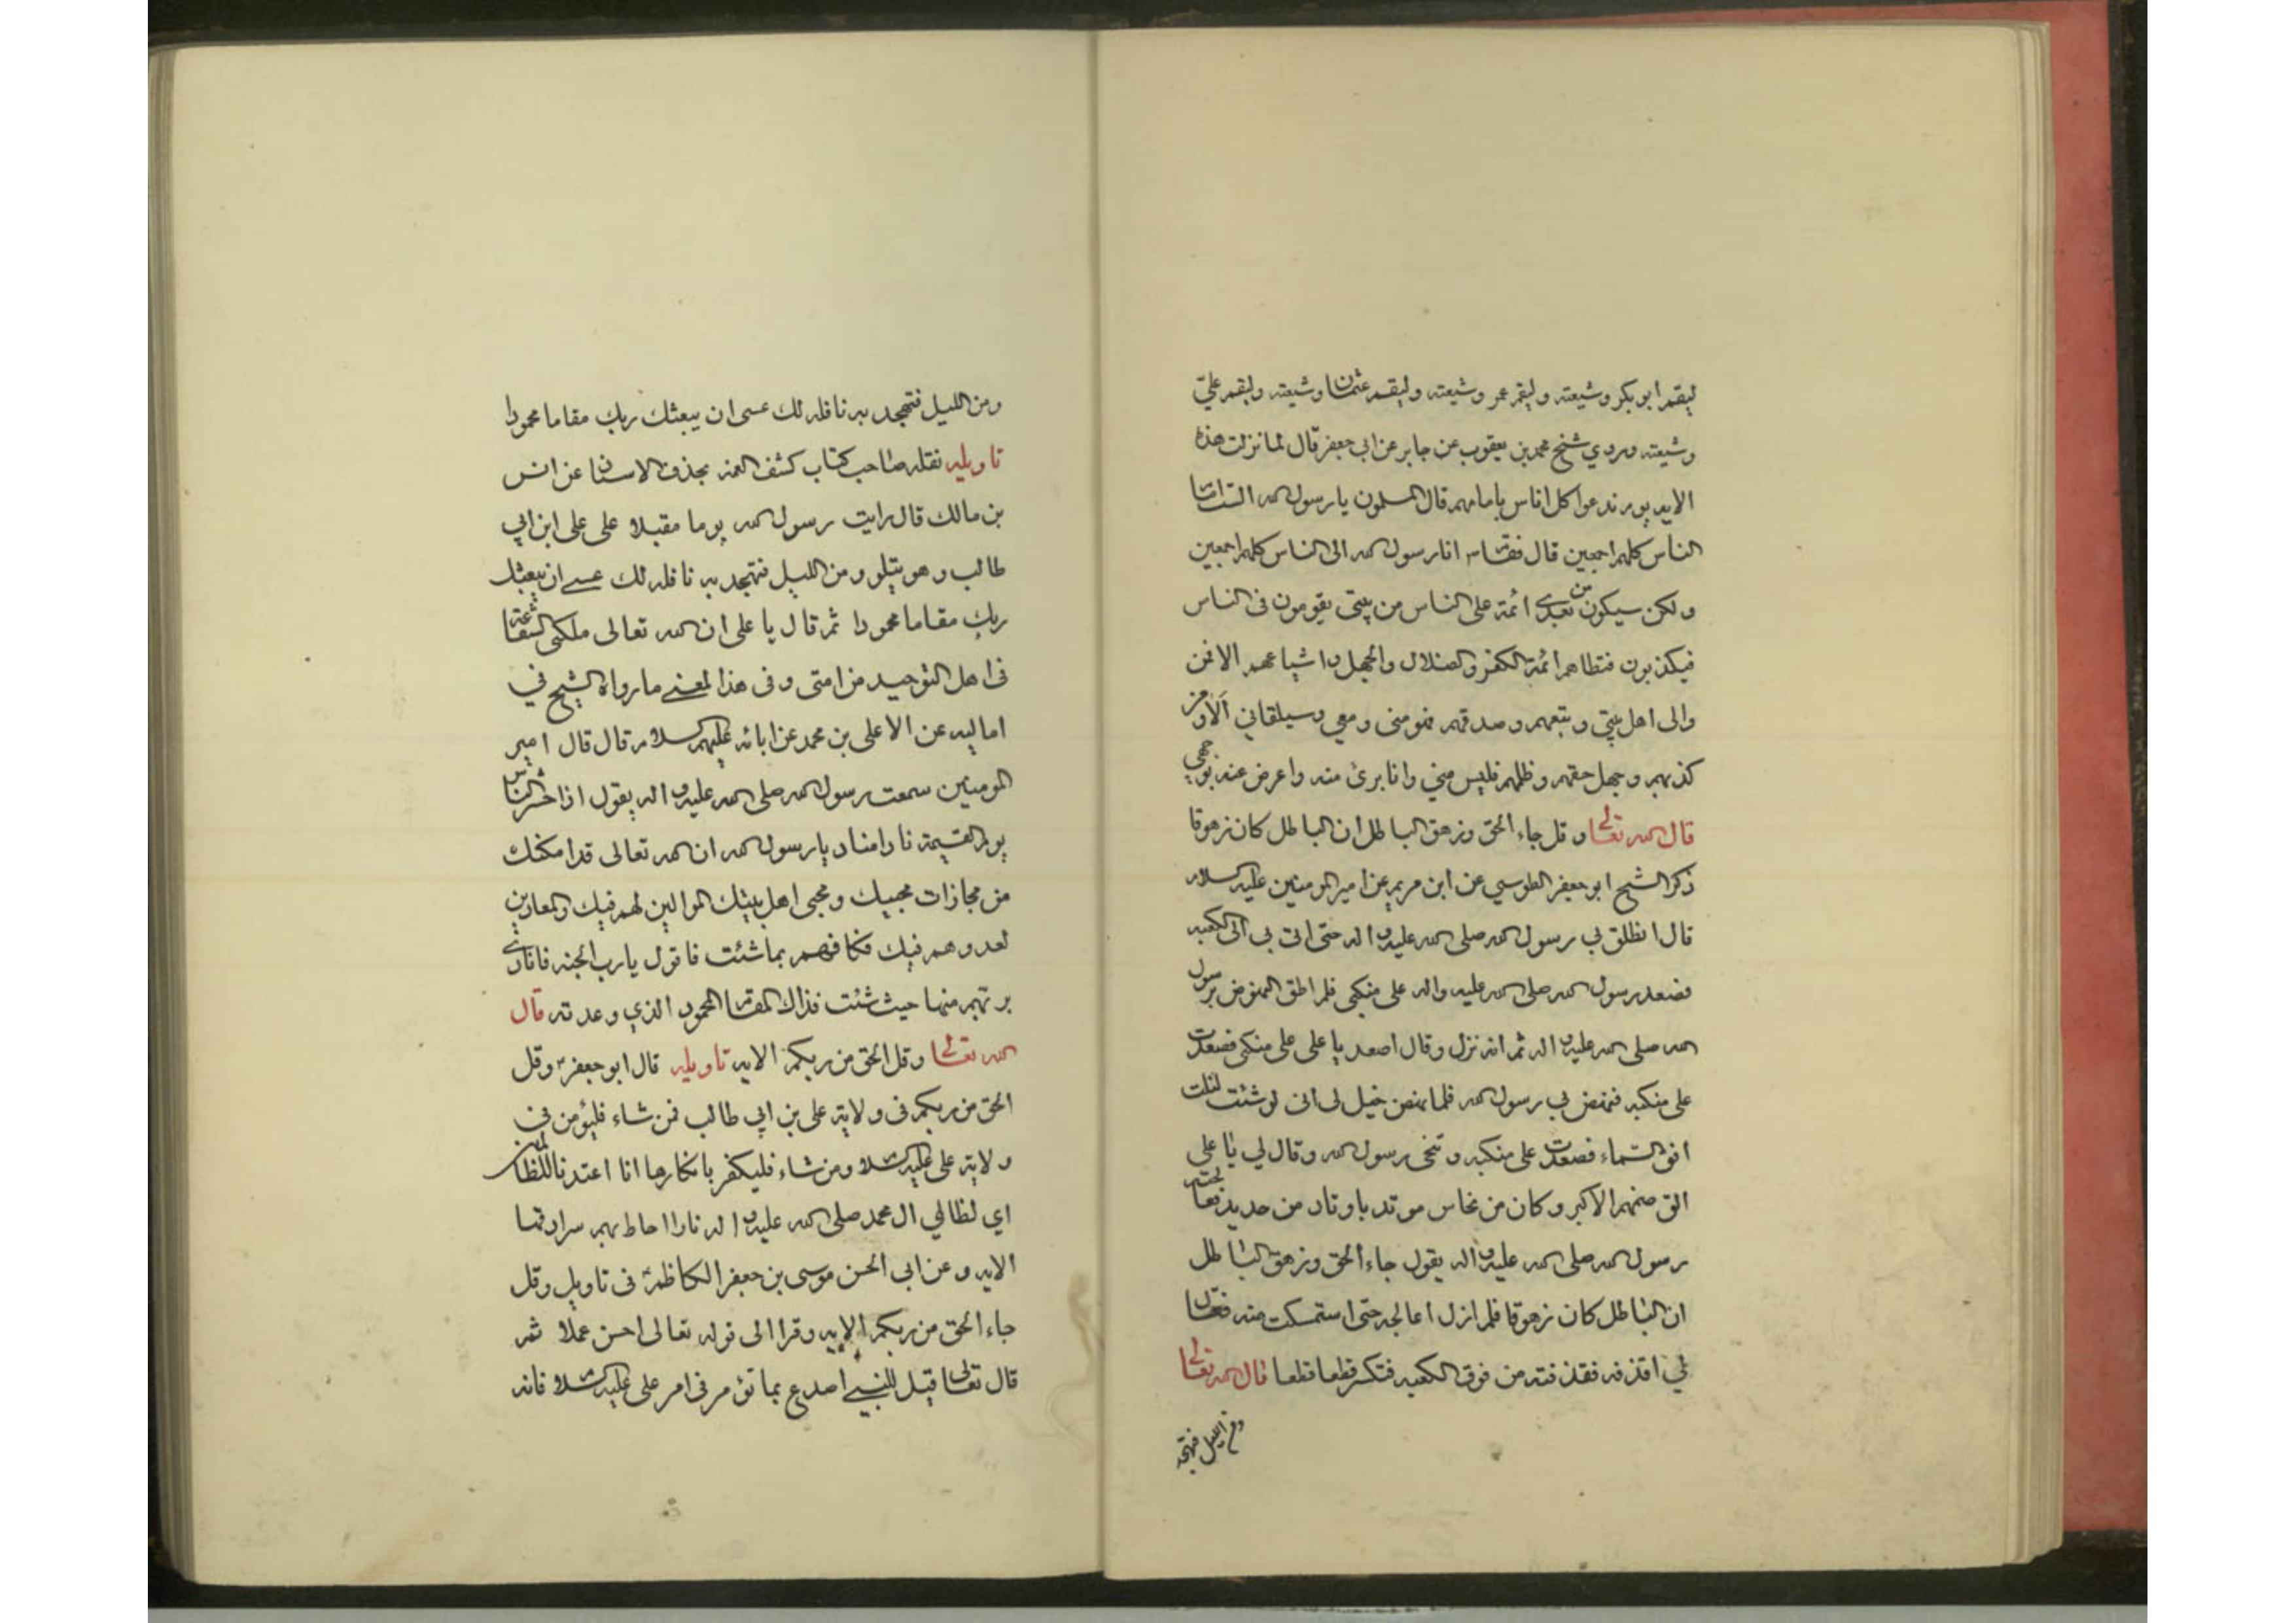 ليقم ابو بكر وشيعته وليقم عمر وشيعته وليقم عثمان وشيعته وليقم علي
وشيعته وروي شيخ محمد بن يعقوب عن جابر عن ابي جعفر قال لما نزلت هذه
الايه يوم ندعوا كل اناس بامامهم قال المسلمون يا رسول الله الست امام
الناس كلهم اجمعين قال فقال انا رسول الله الى الناس كلهم اجمعين
ولكن سيكون من بعدي ائمة على الناس من بيتي يقومون في الناس
فيكذبون فتظاهر ائمة الكفر والضلال والجهل واشياعهم الا فمن
والى اهل بيتي وتبعهم وصدقهم فهو مني ومعي وسيلقاني الا ومن
كذبهم وجهل حقهم وظلمهم فليس مني وانا برئ منه واعرض عنه بوجهي
قال الله تعالى وقل جاء الحق وزهق الباطل ان الباطل كان زهوقا
ذكر الشيخ ابو جعفر الطوسي عن ابن مريم عن امير المومنين عليه السلام
قال انطلق بي رسول الله صلى الله عليه واله حتى اتى بي الى الكعبه
فصعد رسول الله صلى الله عليه واله على منكبي فلم اطق النهوض برسول
الله صلى الله عليه واله ثم انه نزل وقال اصعد يا علي على منكبي فصعدت
على منكبه فنهض بي رسول الله فلما نهض خيل لي اني لو شئت لنلت
افق السماء فصعدت على منكبه وتنحى رسول الله وقال لي يا علي
الق صنمهم الاكبر وكان من نحاس موتد باوتاد من حديد فعالجته
رسول الله صلى الله عليه واله يقول جاء الحق وزهق الباطل
ان الباطل كان زهوقا فلم ازل اعالجه حتى استمسكت منه فقال
لي اقذفه فقذفته من فوق الكعبه فتكسر قطعا قطعا قال الله تعالى
ومن الليل فتهجد
ومن الليل فتهجد به نافله لك عسى ان يبعثك ربك مقاما محمودا
تاويله نقله صاحب كتاب كشف الغمه بحذف الاسناد عن انس
بن مالك قال رايت رسول الله يوما مقبلا على علي ابن ابي
طالب وهو يتلو ومن الليل فتهجد به نافله لك عسى ان يبعثك
ربك مقاما محمودا ثم قال يا علي ان الله تعالى ملكني الشفاعة
في اهل التوحيد من امتي وفي هذا المعنى ما رواه الشيخ في
اماليه عن الاعلى بن محمد عن ابائه عليهم السلام قال قال امير
المومنين سمعت رسول الله صلى الله عليه واله يقول اذا حشر الناس
يوم القيمة نادا مناد يا رسول الله ان الله تعالى قد امكنك
من مجازات محبيك ومحبي اهل بيتك الموالين لهم فيك والمعادين
لعدوهم فيك فكافهم بما شئت فاقول يا رب الجنه فانادى
برتهم منها حيث شئت فذاك المقام المحمود الذي وعدته قال
الله تعالى وقل الحق من ربكم الايه تاويله قال ابو جعفر وقل
الحق من ربكم في ولاية علي بن ابي طالب فمن شاء فليؤمن في
ولاية علي عليه السلام ومن شاء فليكفر بانكارها انا اعتدنا للظالمين
اي لظالمي ال محمد صلى الله عليه واله نارا احاط بهم سرادقها
الايه وعن ابي الحسن موسى بن جعفر الكاظم في تاويل وقل
جاء الحق من ربكم الايه وقرا الى قوله تعالى احسن عملا ثم
قال تعالى قيل للنبي اصدع بما تؤمر في امر علي عليه السلام فانه